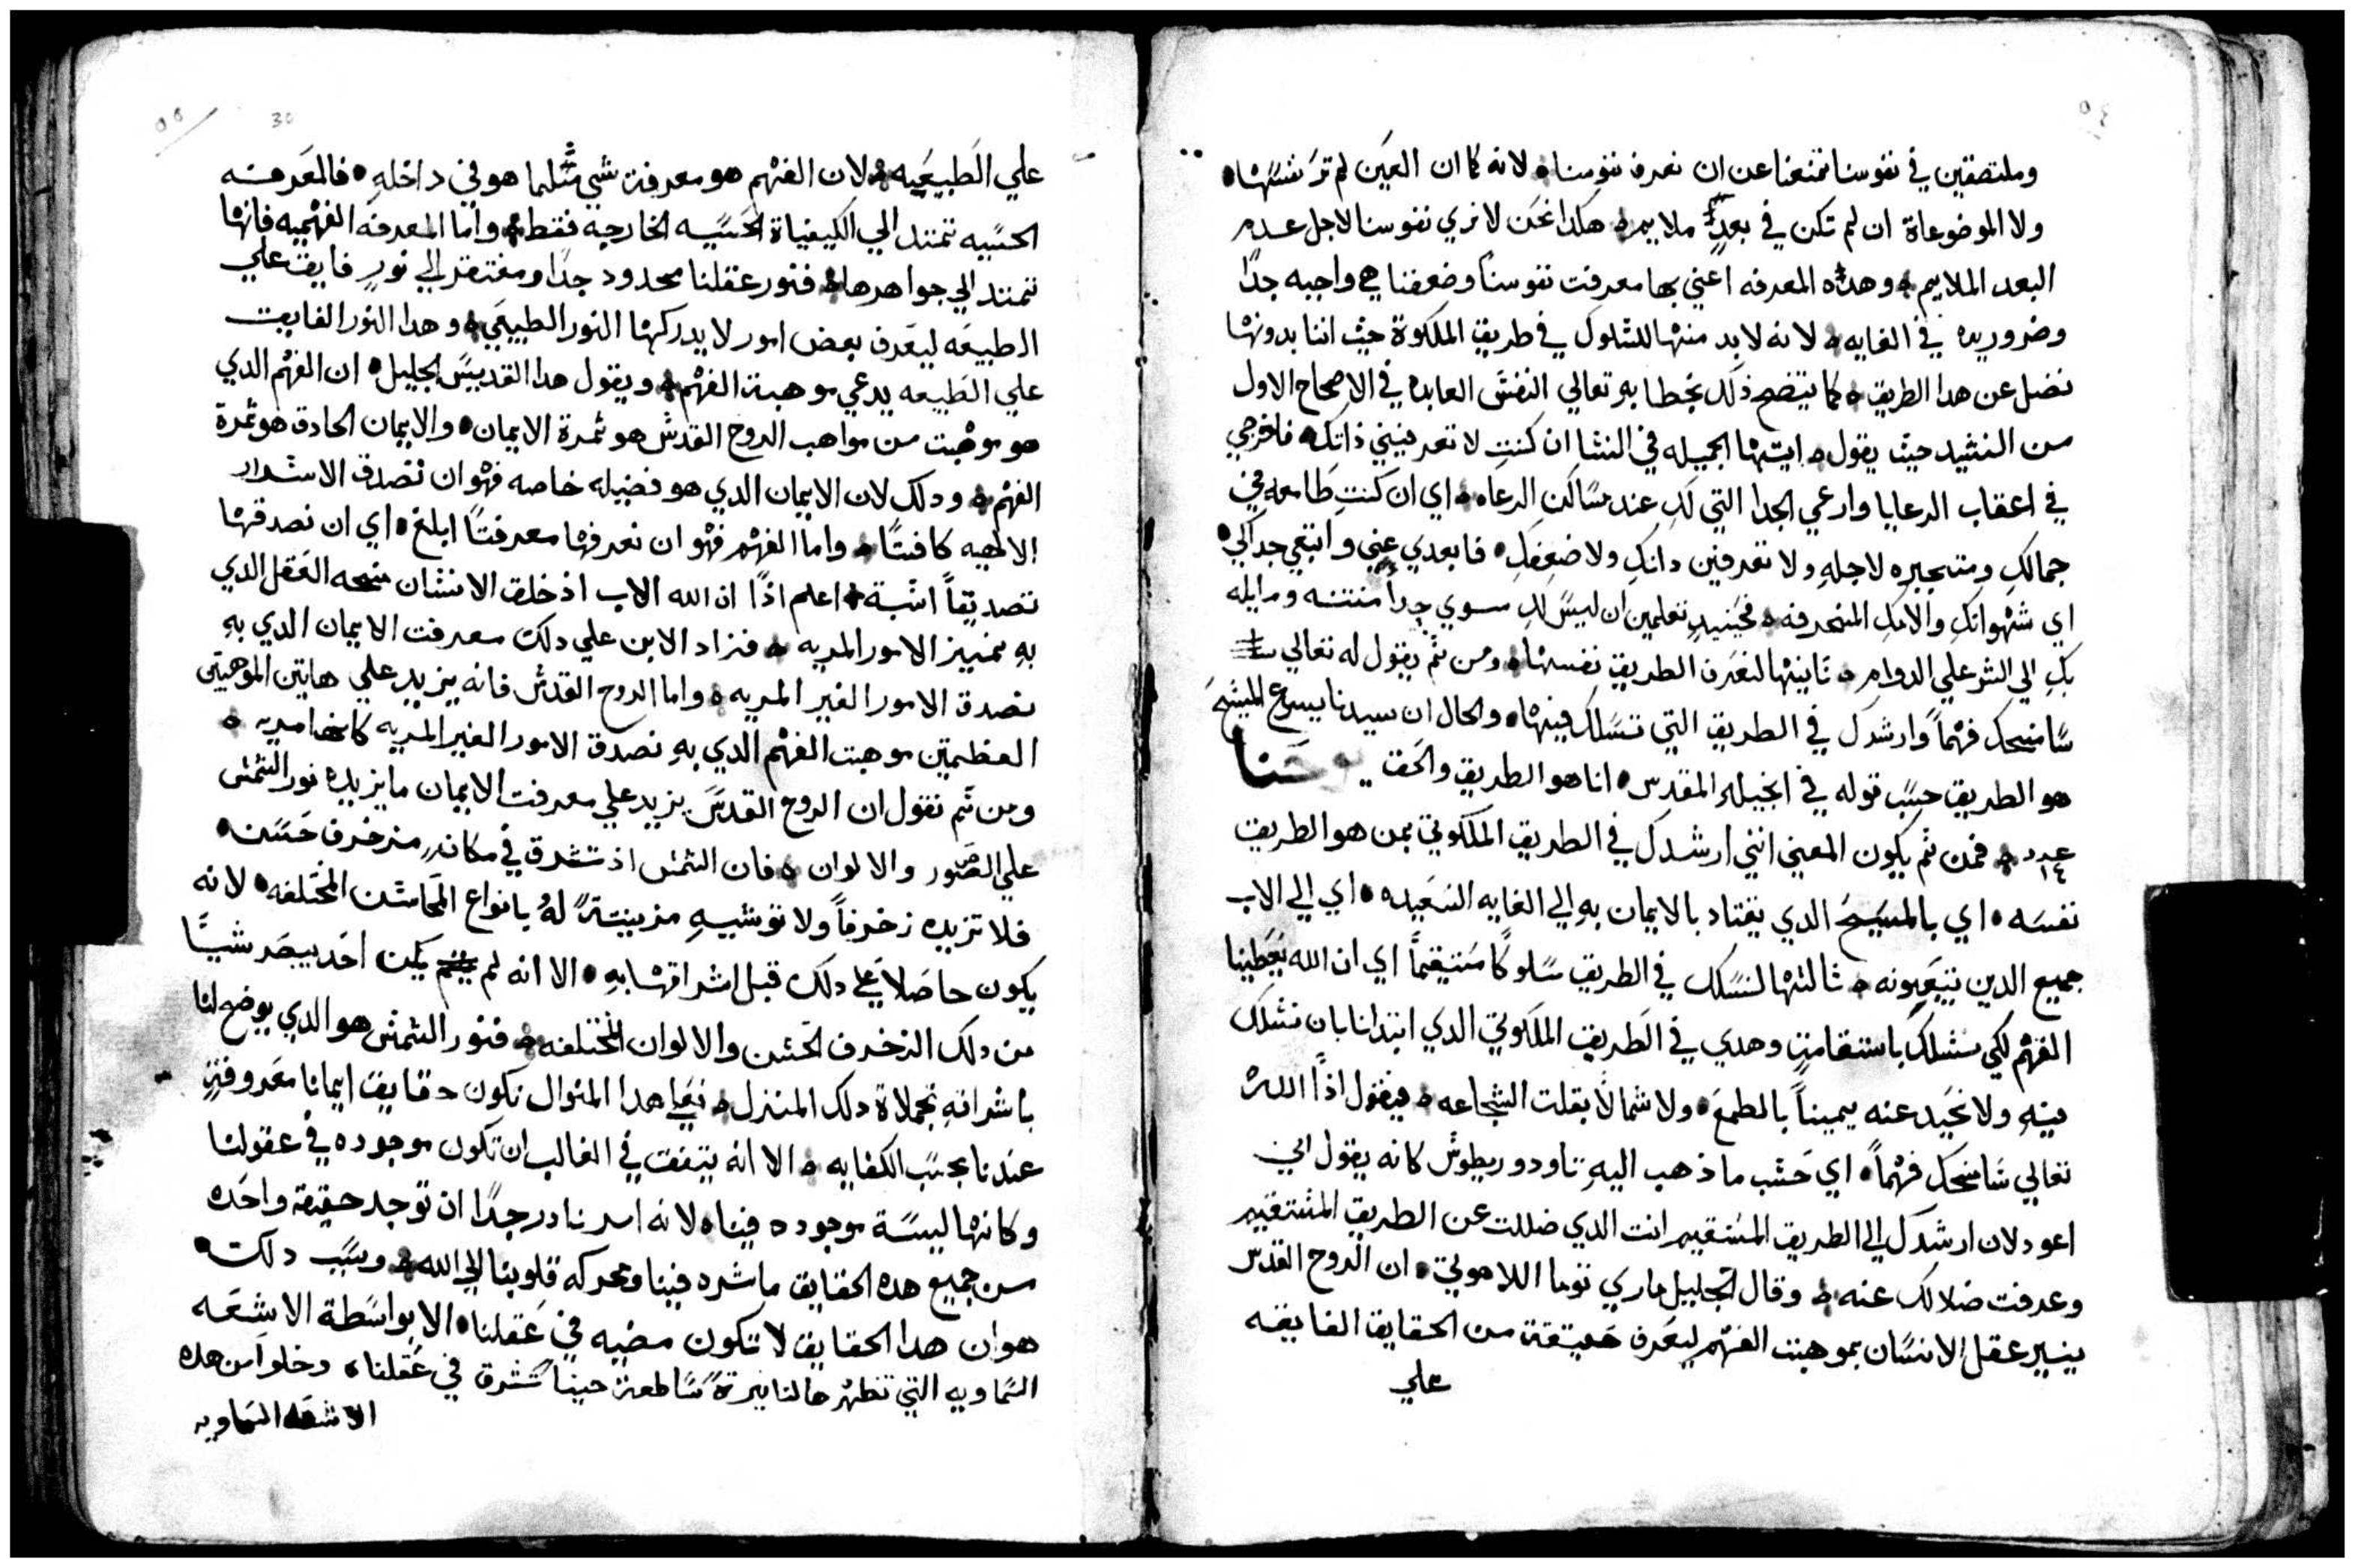 ٥٤
وملتصقين في نفوسنا تمنعنا عن ان نعرف نفوسنا ه لانه كما ان العين لم ترَ نفسَهْا ه
ولا الموضوعاة ان لم تكن في بعدٍ ملايم ه هكدا نحن لا نري نفوسنا لاجل عدم
البعد الملايم ه وهده المعرفه اعني بها معرفت نفوسنا وضعفنا هي واجبه جدًا
وضروريه في الغايه ه لانه لا بد منهْا للسْلوك في طريق الملكوة حيث اننا بدونهْا
نضل عن هدا الطريق ه كما يتضح ذلك بخطابهِ تعالي النفسْ العابده في الاصحاح الاول
من النشيد حيث يقول ه ايتهْا الجميله في النسْا ان كنتِ لا تعرفينيني ذاتكِ ه فاخرجي
في اعقاب الرعايا وارعي الجدا التي لكِ عند مسَاكن الرعاه ه اي ان كنتِ طامعه في
جمالكِ ومتحيره لاجلهِ ولا تعرفين داتكِ ولا ضعفكِ ه فابعدي عني واتبعي جداكي ه
اي شهْواتكِ والامكِ المنحرفه ه فحينيدٍ تعلمين ان ليسَ لكِ سوي جداً منتنه ومايله
بكِ الي الشر علي الدوام ه ثانيهْا لنعَرف الطريق نفسهْا ه ومن ثَم يقول له تعالي
سَامنحك فهْماً وارشدك في الطريق التي تسَلك فيهْا ه والحال ان سيدنا يسوع المسَيحَ
هو الطريق حسَب قوله في انجيله المقدس ه انا هو الطريق والحَق يوحَنا
عدد ١٤ ه فمن ثَم يكون المعني انني ارشدك في الطريق الملكوتي بمن هو الطريق
نفسَه ه اي بالمسَيحَ الدي يقتاد بالايمان بهِ الي الغايه السَعيده ه اي الي الاب
جميع الدين يتبعَونه ه ثالثهْا لنسَلك في الطريق سَلوكًا مسَتيقمًا اي ان الله يَعَطينا
الفهْم لكي نسْلك باستقامةٍ وهدي في الطريق الملكوتي الدي ابتدانا بان نسْلك
فيهِ ولا نحَيد عنه يميناً بالطمعَ ه ولا شمالًا بقلت الشجاعه ه فيقول اذًا اللهْ
تعالي سَامنحك فهْماً ه اي حَسْب ما ذهب اليهِ تاودوريطوسْ كانه يقول اني
اعود لان ارشدك الي الطريق المسْتقيم انت الدي ضللت عن الطريق المسْتقيم
وعرفت ضلالك عنه ه وقال الجليل ماري توما اللاهوتي ه ان الروح القدس
ينير عقل الانسَان بموهبت الفهْم ليعَرف حَقيقة من الحقايق الفايقه
علي
٥٥
30
علي الطَبيعَيه ه لان الفهْم هو معرفة شي مثلما هو في داخلهِ ه فالمعَرفه
الحسَيه تمتد الي الكيفياة الحَسَيه الخارجيه فقط ه واما المعرفه الفهْميه فانهْا
تمتد الي جواهرها ه فنور عقلنا محدود جدًا ومفتقر الي نورٍ فايق علي
الطبيعَه ليعَرف بعض امور لا يدركهْا النور الطبيعَي ه وهدا النور الفايق
علي الطَبيعه يدعي موهبة الفهْم ه ويقول هدا القديسَ الجليل ه ان الفهْم الدي
هو موهْبت من مواهب الروح القدسْ هو ثمرة الايمان ه والايمان الحادق هو ثمرة
الفهْم ه ودلك لان الايمان الدي هو فضيله خاصه فهْو ان نصدق الاسْرار
الالهيه كافتًا ه واما الفهْم فهْو ان نعرفها معرفتًا ابلغ ه اي ان نصدقهْا
تصديقاً اثبة ه اعلم اذًا ان الله الاب اذ خلق الانسْان منحه العَقل الدي
بهِ يمييز الامور المريه ه فزاد الابن علي دلك معرفت الايمان الدي بهِ
نصدق الامور الغير المريه ه واما الروح القدسْ فانه يزيد علي هاتين الموهبتين
العظمتين موهبت الفهْم الدي بهِ نصدق الامور الغير المريه كانها مريه ه
ومن ثَم نقول ان الروح القدسَ يزيد علي معرفت الايمان ما يزيده نور الشمسْ
علي الصَور والالوان ه فان الشمسْ اذ تشرق في مكانٍ مزخرف حَسَن ه
فلا تزيده زخرفاً ولا توشيهِ مزينتًه لهُ بانواع المَحاسْن المختلفه ه لانه
يكون حاصَلا علي دلك قبل اشراقهْا بهِ ه الا انه لم يكن احَد يبصَر شيًا
من دلك الزخرف الحَسْن والالوان المختلفه ه فنور الشمسْ هو الدي يوضح لنا
باشراقهِ تجملاة دلك المنزل ه فعَلي هدا المنوال تكون حقايق ايماننا معَروفةٍ
عندنا بحسَب الكفايه ه الا انه يتفق في الغالب ان تكون موجوده في عقولنا
وكانهْا ليسَة موجوده فيناه لانه امر نادر جدًا ان توجد حقيقة واحَده
من جميع هده الحقايق ماشره فينا ومحركه قلوبنا الي الله ه وسَبب دلك ه
هو ان هدا الحقايق لا تكون مضيه في عَقلنا ه الا بواسَطة الاشعَه
السَماويه التي تظهْرها لنا نيرةً سَاطعة حينما تشَرق في عَقلنا ه وخلواً من هده
الاشعَه السَماويه